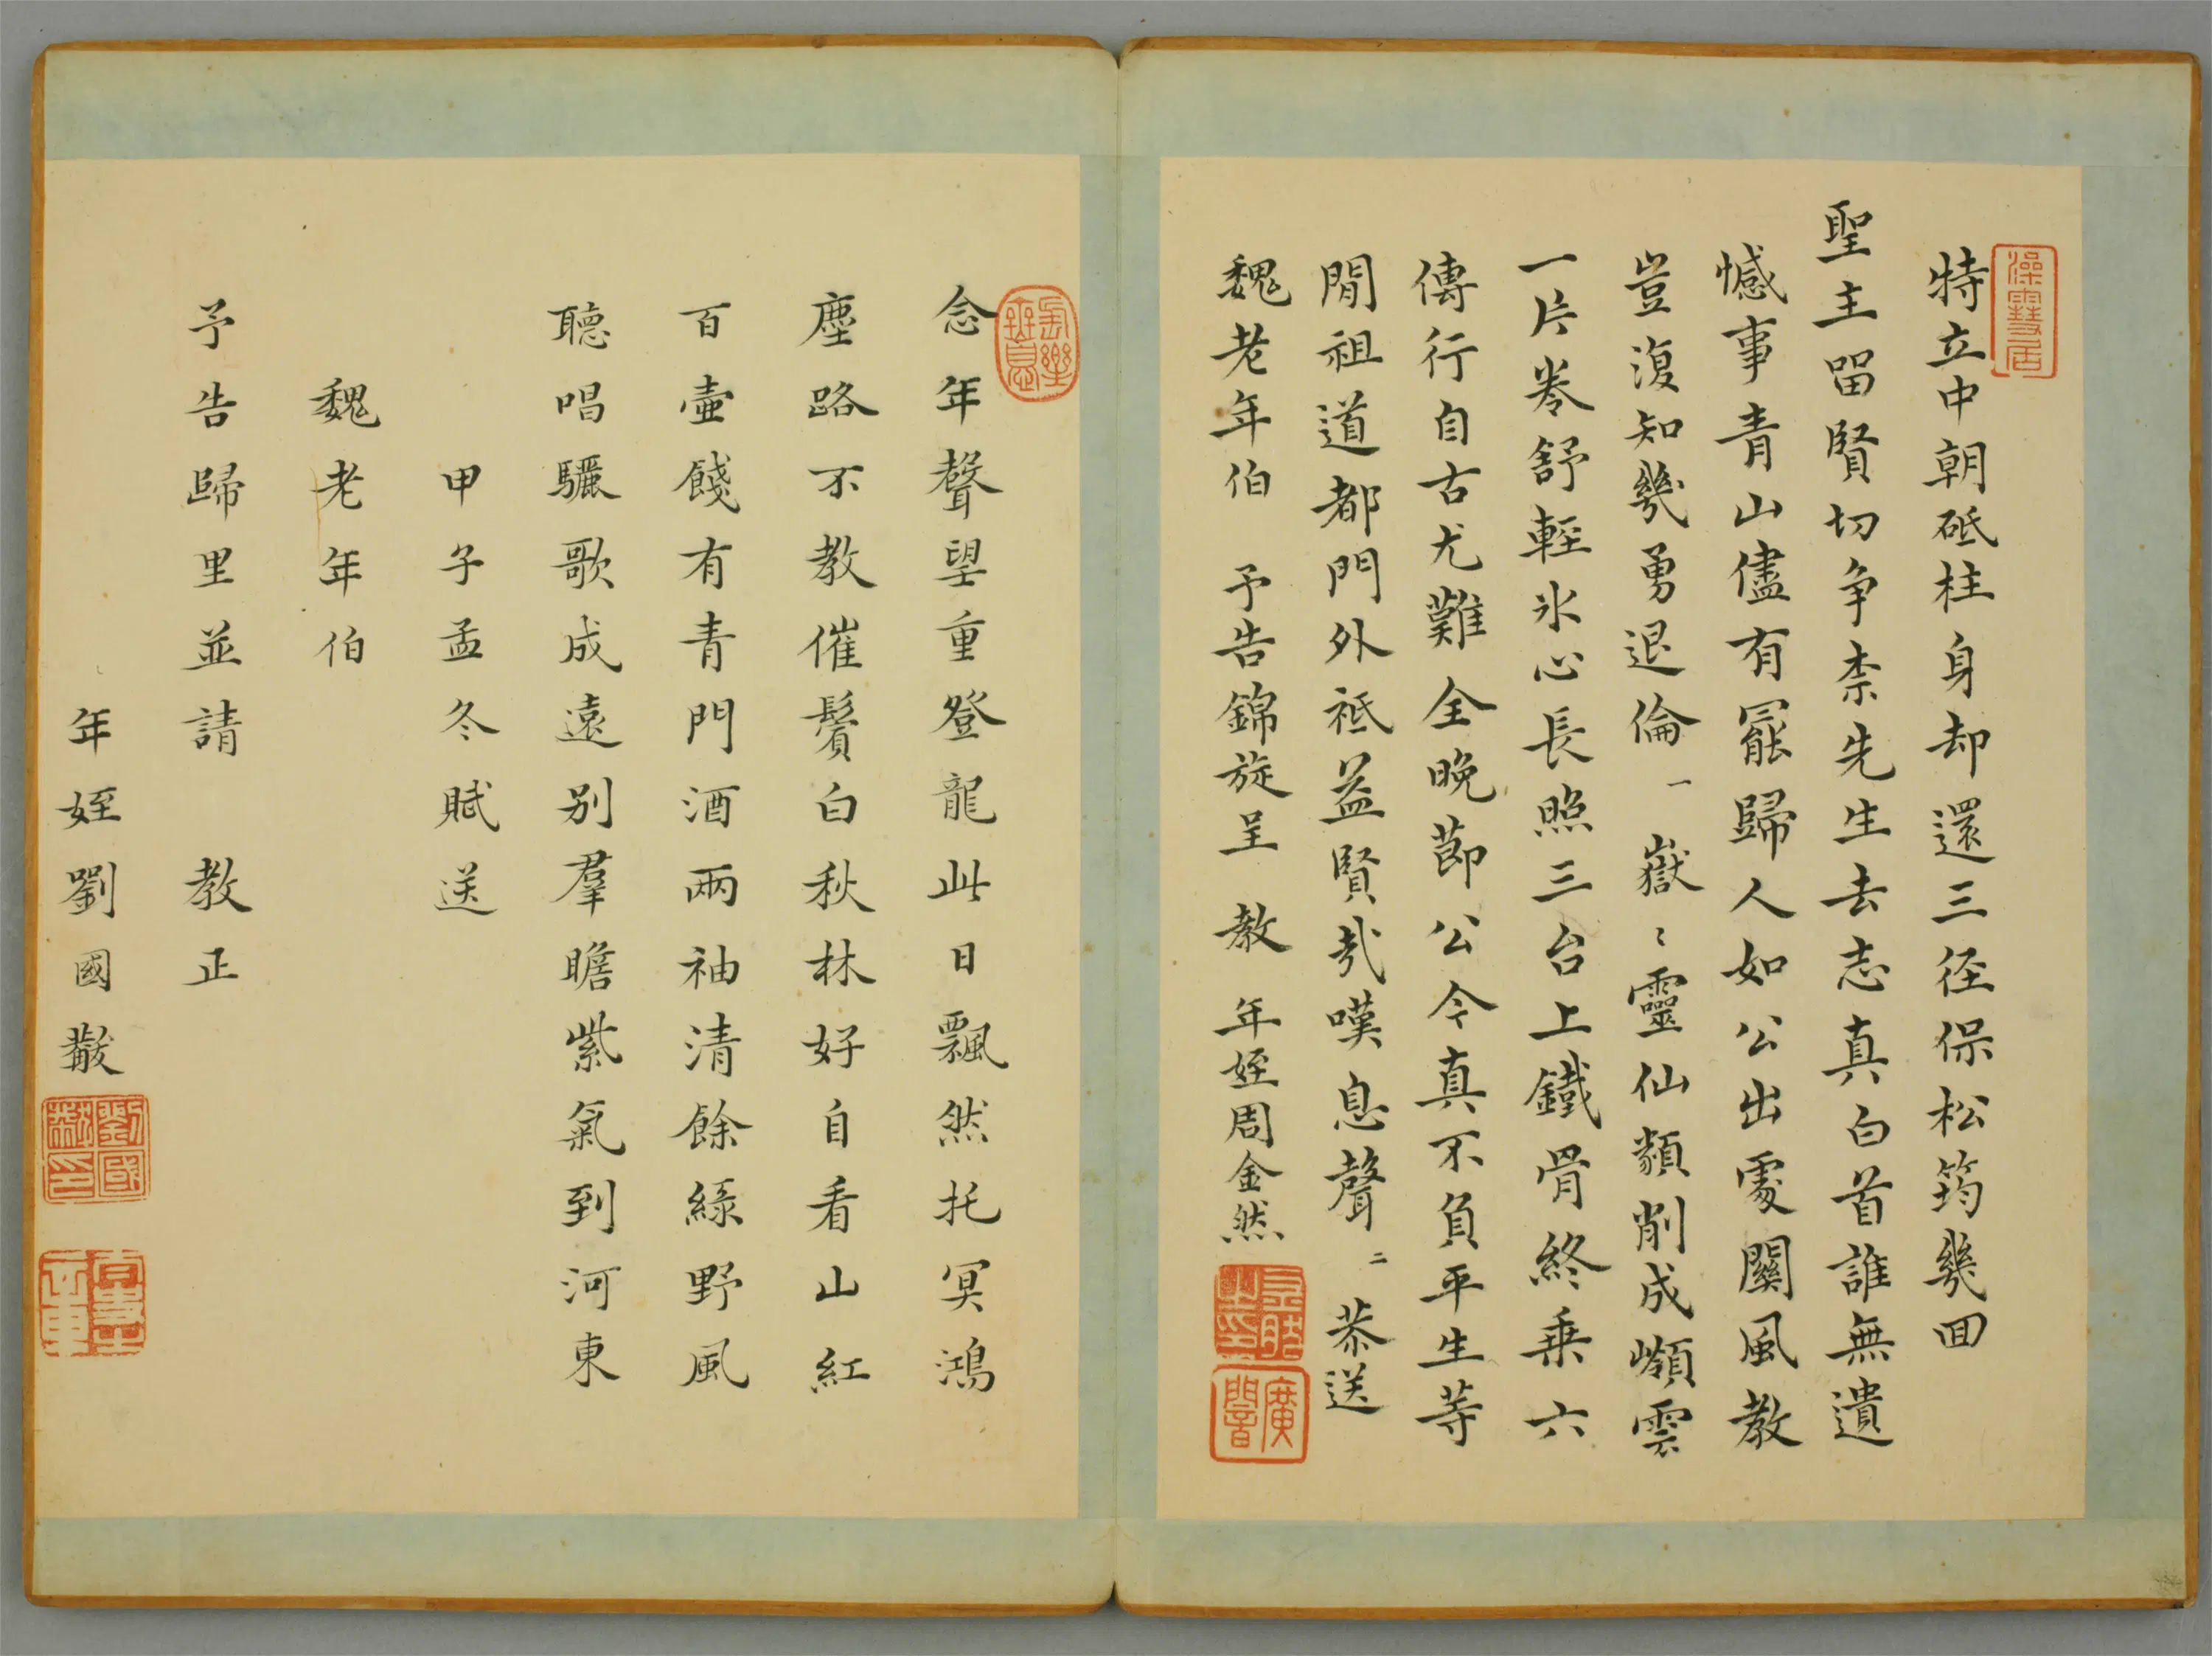 特立中朝砥柱身却還三径保松筠幾回
聖主留賢切争柰先生去志真白首誰無遺
憾事青山儘有罷歸人如公出處關風教
豈復知幾勇退倫一 嶽〻靈仙顏削成嶺雲
一片卷舒輕氷心長照三台上鐵骨終乗六
傳行自古尤難全晩節公今真不負平生等
閒祖道都門外祗益賢哉嘆息聲二 恭送
魏老年伯 予告錦旋呈 教 年姪周金然
念年聲望重登龍此日飄然托冥鴻
塵路不教催鬢白秋林好自看山紅
百壷餞有青門酒兩袖清餘綠野風
聽唱驪歌成遠别羣瞻紫氣到河東
甲子孟冬賦送
魏老年伯
予告歸里並請 教正
年姪劉國黻
劉國黻印